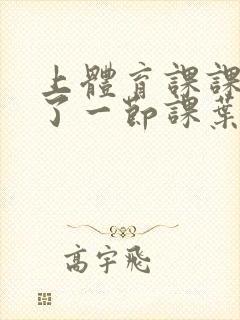 上體育課課
了一節課葉
高宇飛